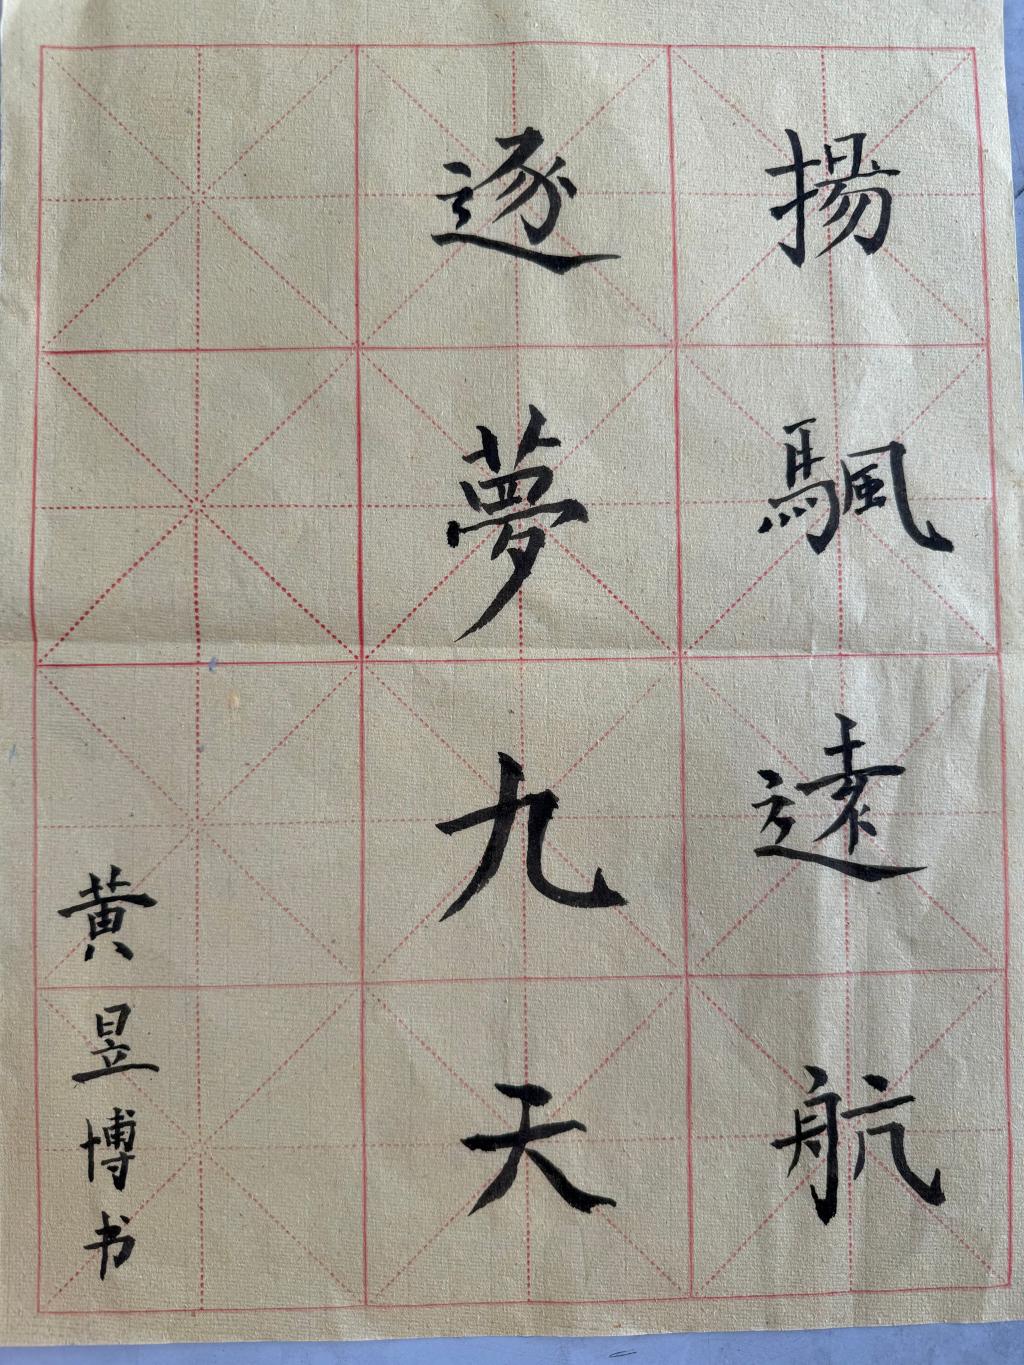 揚颿遠航
逐夢九天
黄昱博书